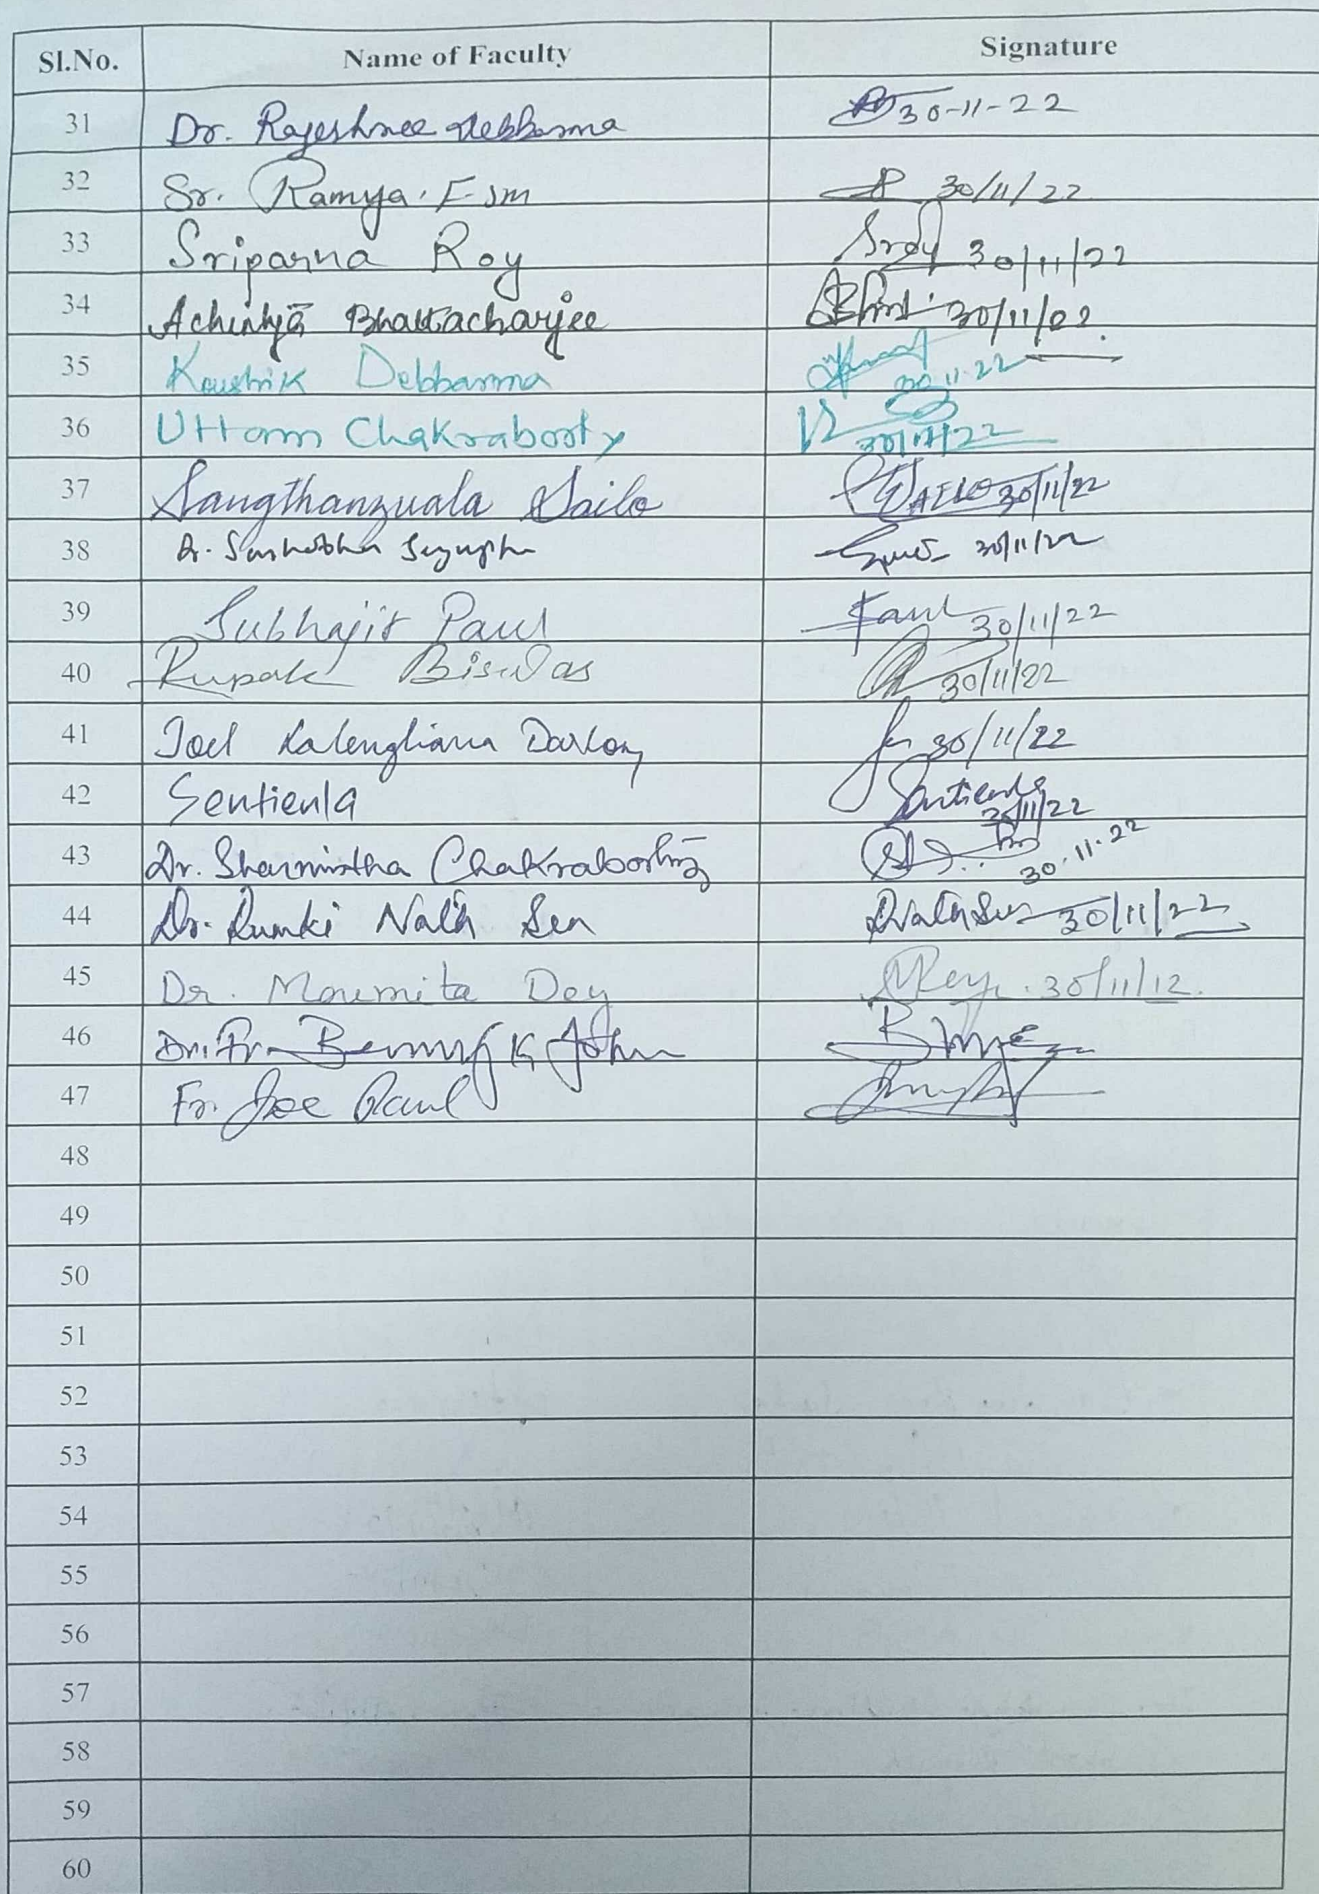 Sl.No. Name of Faculty Signature
31 Dr. Rajeshree Debbarma 30-11-22
32 Sr. Ramya. Fsm 30/11/22
33 Sriparna Roy SRoy 30/11/22
34 Achintya Bhattacharjee 30/11/22.
35 Koushik Debbarma 30.11.22
36 Uttam Chakraborty 30/11/22
37 Sangthanzuala Sailo Sailo 30/11/22
38 Dr. 30/11/22
39 Subhajit Paul Paul 30/11/22
40 Rupak Biswas 30/11/22
41 Joel Lalengliana Darlong 30/11/22
42 Sentienla Sentienla 30/11/22
43 Dr. Sharmistha Chakraborty 30.11.22
44 Dr. Rumki Nath Sen RNath Sen 30/11/22
45 Dr. Moumita Dey MDey. 30/11/12.
46 Dr. Fr. Benny K John
47 Fr. Joe Paul
48
49
50
51
52
53
54
55
56
57
58
59
60